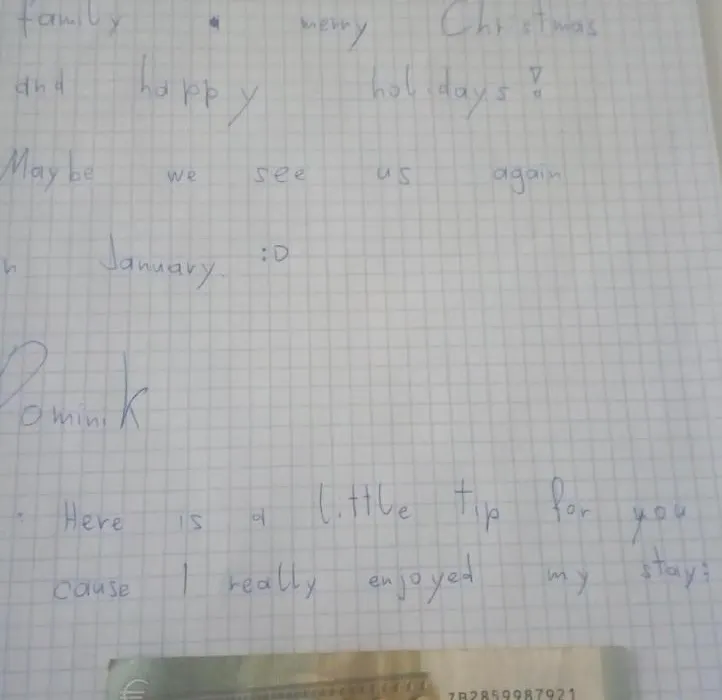 family merry Christmas
and happy holidays!
Maybe we see us again
n January. :D
Dominik
Here is a little tip for you
cause I really enjoyed my stay:
€ ZB2859987921